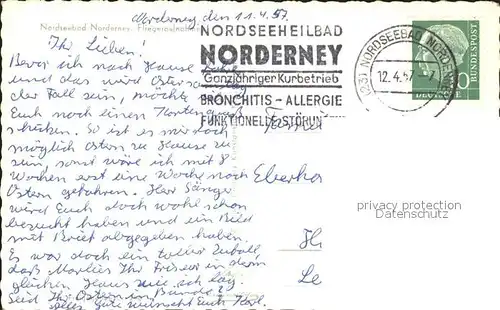 Norderney, den 11.4.57.
Nordseebad Norderney Fliegeraufnahme
Ihr Lieben!
Bevor ich nach Hause fahre
und das wird Ostersamstag
der Fall sein, möchte ich
Euch noch einen Kartengruß
schicken. So ist es mir doch
möglich Ostern zu Hause zu
sein, sonst wäre ich mit 8
Wochen erst eine Woche nach
Ostern gefahren. Herr Sänger
wird Euch doch wohl schon
besucht haben und ein Bild
mit Brief abgegeben haben.
Es war doch ein toller Zufall,
daß Marlies Ihr Friseur in dem
gleichen Hause wie ich lag.
Seid Ihr Ostern in Bünde?
Alles Gute wünscht Euch Karl.
NORDSEEHEILBAD
NORDERNEY
Ganzjähriger Kurbetrieb
BRONCHITIS – ALLERGIE
FUNKTIONELLE STÖRUN
(23) NORDSEEBAD NORDERNEY
12.4.57
DEUTSCHE
BUNDESPOST
10
Familie
Eberha
H
Le
privacy protection
Datenschutz